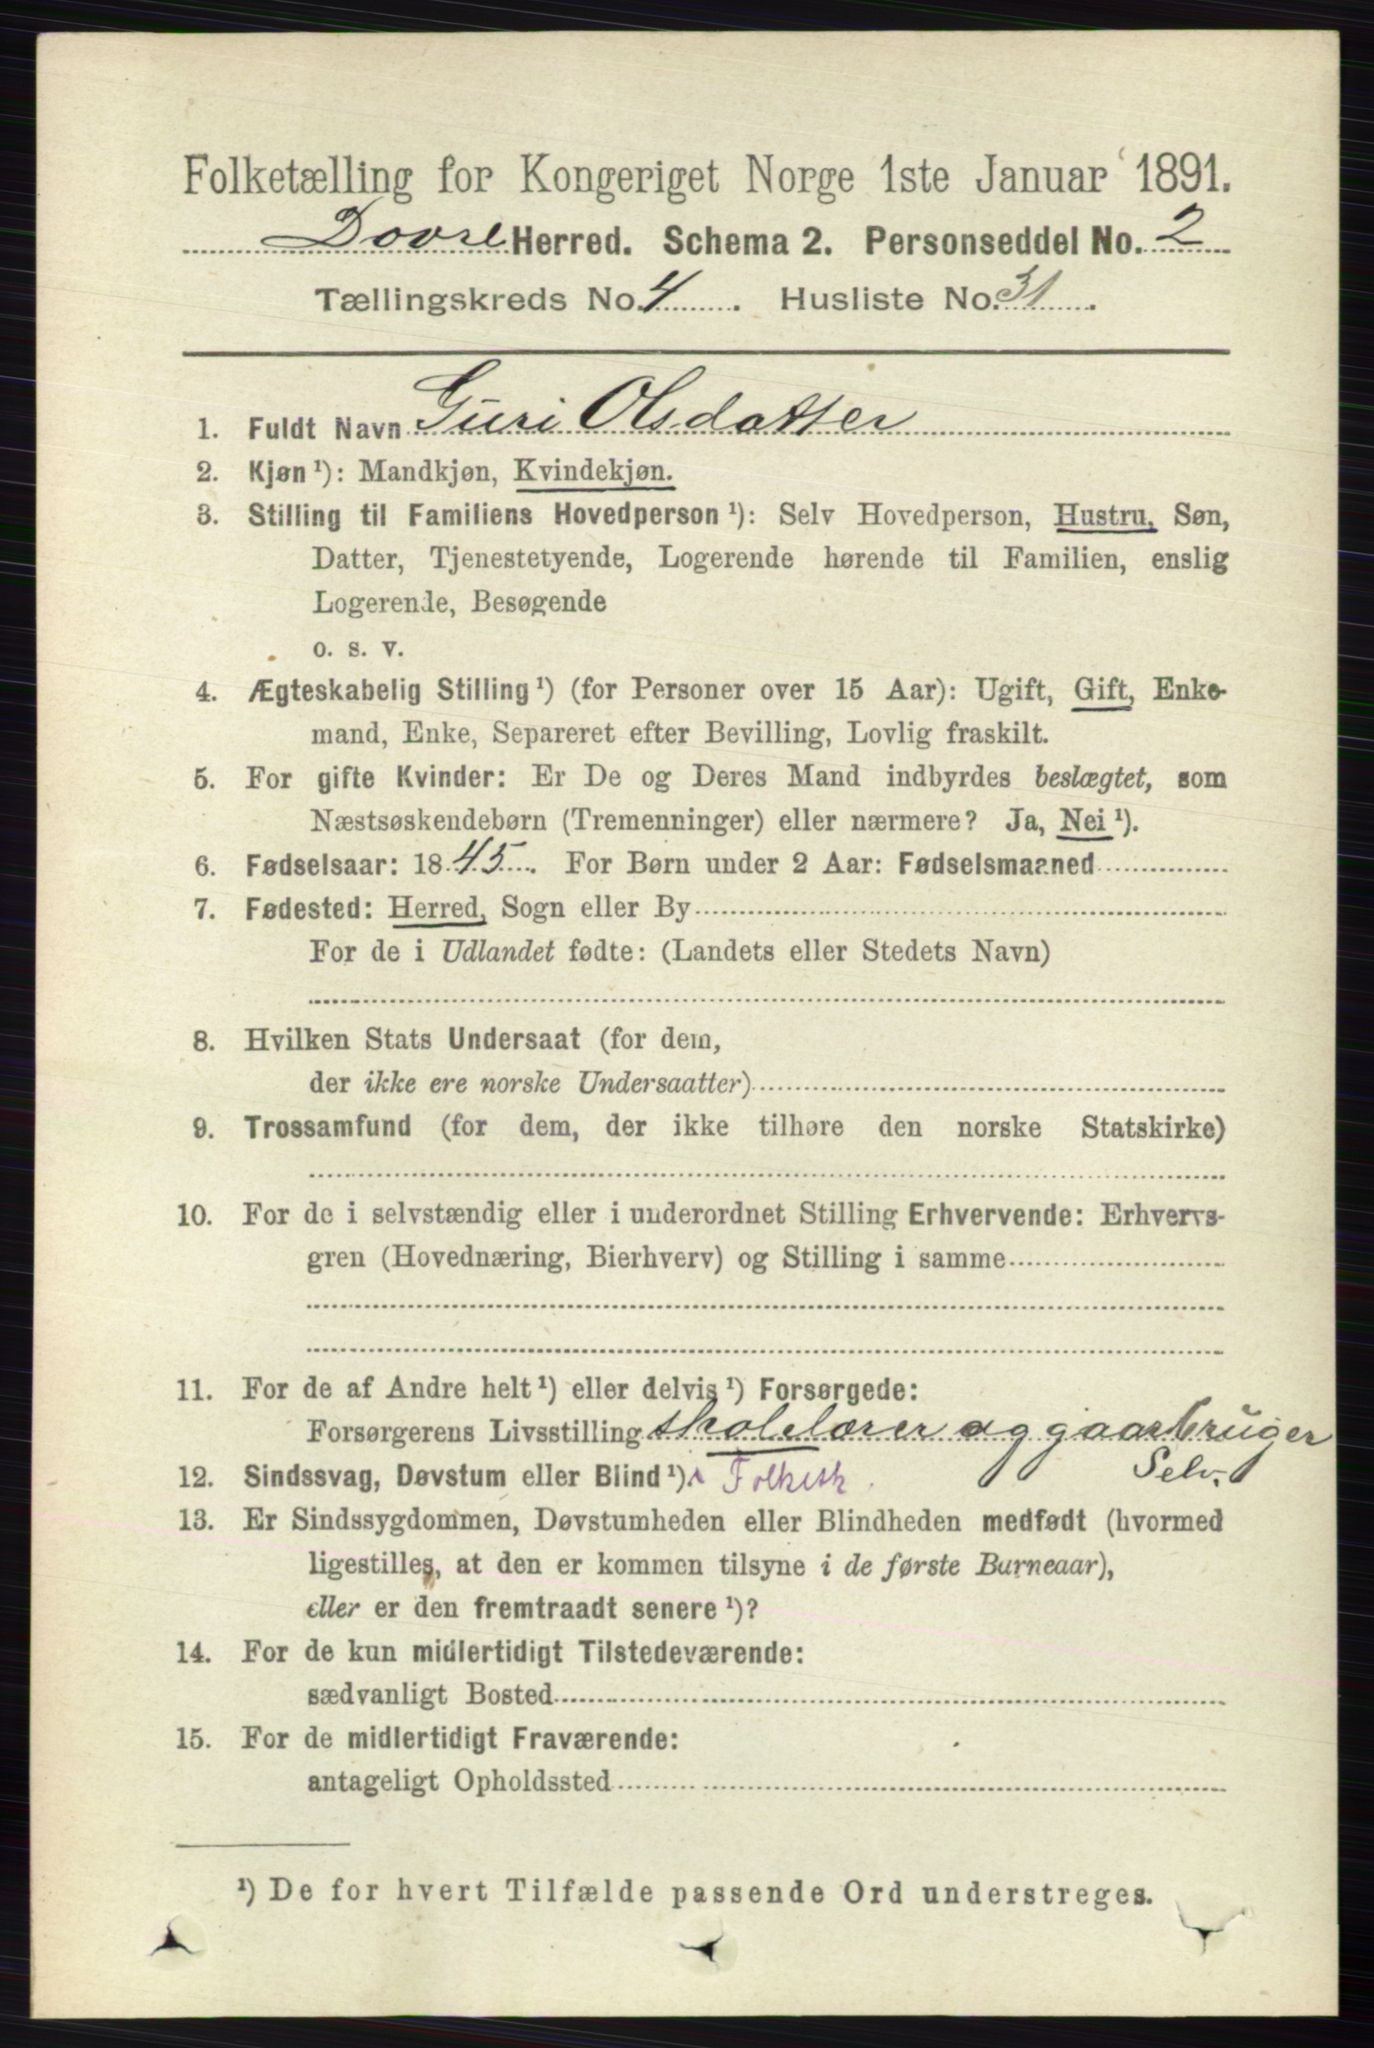 Folketælling for Kongeriget Norge 1ste Januar 1891.
Dovre Herred. Schema 2. Personseddel No. 2
Tællingskreds No. 4. Husliste No. 31.
1. Fuldt Navn Guri Olsdatter
2. Kjøn ¹): Mandkjøn, Kvindekjøn.
3. Stilling til Familiens Hovedperson ¹): Selv Hovedperson, Hustru, Søn,
Datter, Tjenestetyende, Logerende hørende til Familien, enslig
Logerende, Besøgende
o. s. v.
4. Ægteskabelig Stilling ¹) (for Personer over 15 Aar): Ugift, Gift, Enke-
mand, Enke, Separeret efter Bevilling, Lovlig fraskilt.
5. For gifte Kvinder: Er De og Deres Mand indbyrdes beslægtet, som
Næstsøskendebørn (Tremenninger) eller nærmere? Ja, Nei ¹).
6. Fødselsaar: 1845. For Børn under 2 Aar: Fødselsmaaned
7. Fødested: Herred, Sogn eller By
For de i Udlandet fødte: (Landets eller Stedets Navn)
8. Hvilken Stats Undersaat (for dem,
der ikke ere norske Undersaatter)
9. Trossamfund (for dem, der ikke tilhøre den norske Statskirke)
10. For de i selvstændig eller i underordnet Stilling Erhvervende: Erhvervs-
gren (Hovednæring, Bierhverv) og Stilling i samme
11. For de af Andre helt ¹) eller delvis ¹) Forsørgede:
Forsørgerens Livsstilling skolelærer og gaarbruger
12. Sindssvag, Døvstum eller Blind ¹). Folkesk. Selv.
13. Er Sindssygdommen, Døvstumheden eller Blindheden medfødt (hvormed
ligestilles, at den er kommen tilsyne i de første Barneaar),
eller er den fremtraadt senere ¹)?
14. For de kun midlertidigt Tilstedeværende:
sædvanligt Bosted
15. For de midlertidigt Fraværende:
antageligt Opholdssted
¹) De for hvert Tilfælde passende Ord understreges.